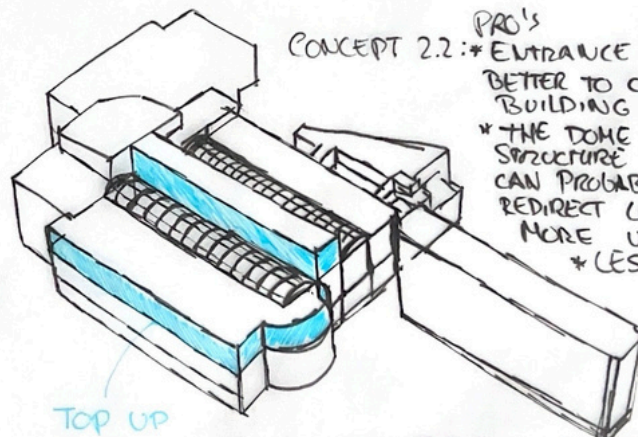 PRO's
CONCEPT 2.2: * ENTRANCE
BETTER TO
BUILDING
* THE DOME
STRUCTURE
CAN PROBAB
REDIRECT
MORE
* LES
TOP UP